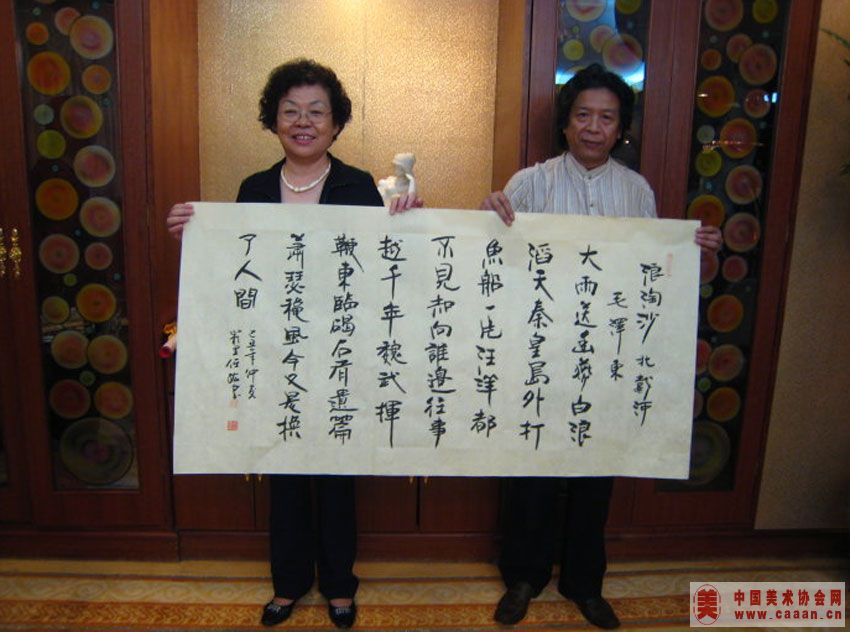 浪淘沙 北戴河
毛澤東
大雨送幽燕白浪
滔天秦皇島外打
魚船一片汪洋都
不見知向誰邊往事
越千年魏武揮
鞭東臨碣石有遺篇
蕭瑟穐風今又是換
了人間
己丑年仲夏
美
中国美术协会网
www.caaan.cn